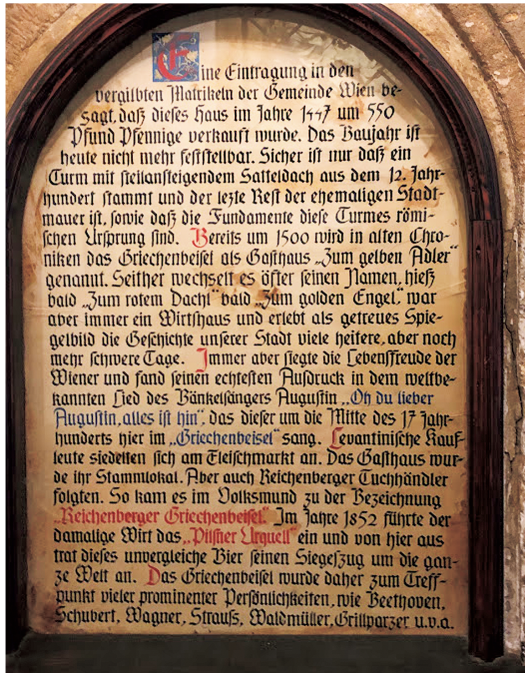 Eine Eintragung in den
vergilbten Matrikeln der Gemeinde Wien be-
sagt, daß dieses Haus im Jahre 1447 um 550
Pfund Pfennige verkauft wurde. Das Baujahr ist
heute nicht mehr feststellbar. Sicher ist nur daß ein
Turm mit steilansteigendem Satteldach aus dem 12. Jahr-
hundert stammt und der lezte Rest der ehemaligen Stadt-
mauer ist, sowie daß die Fundamente diese Turmes römi-
schen Ursprung sind. Bereits um 1500 wird in alten Chro-
niken das Griechenbeisel als Gasthaus „Zum gelben Adler"
genannt. Seither wechselt es öfter seinen Namen, hieß
bald „Zum rotem Dachl" bald „Zum golden Engel." war
aber immer ein Wirtshaus und erlebt als getreues Spie-
gelbild die Geschichte unserer Stadt viele heitere, aber noch
mehr schwere Tage. Immer aber siegte die Lebensfreude der
Wiener und fand seinen echtesten Ausdruck in dem weltbe-
kannten Lied des Bänkelsängers Augustin „Oh du lieber
Augustin, alles ist hin". das dieser um die Mitte des 17 Jahr-
hunderts hier im „Griechenbeisel" sang. Levantinische Kauf-
leute siedelten sich am Fleischmarkt an. Das Gasthaus wur-
de ihr Stammlokal. Aber auch Reichenberger Tuchhändler
folgten. So kam es im Volksmund zu der Bezeichnung
„Reichenberger Griechenbeisel." Im Jahre 1852 führte der
damalige Wirt das „Pilsner Urquell" ein und von hier aus
trat dieses unvergleiche Bier seinen Siegeszug um die gan-
ze Welt an. Das Griechenbeisel wurde daher zum Treff-
punkt vieler prominenter Persönlichkeiten, wie Beethoven,
Schubert, Wagner, Strauß, Waldmüller, Grillparzer u.v.a.